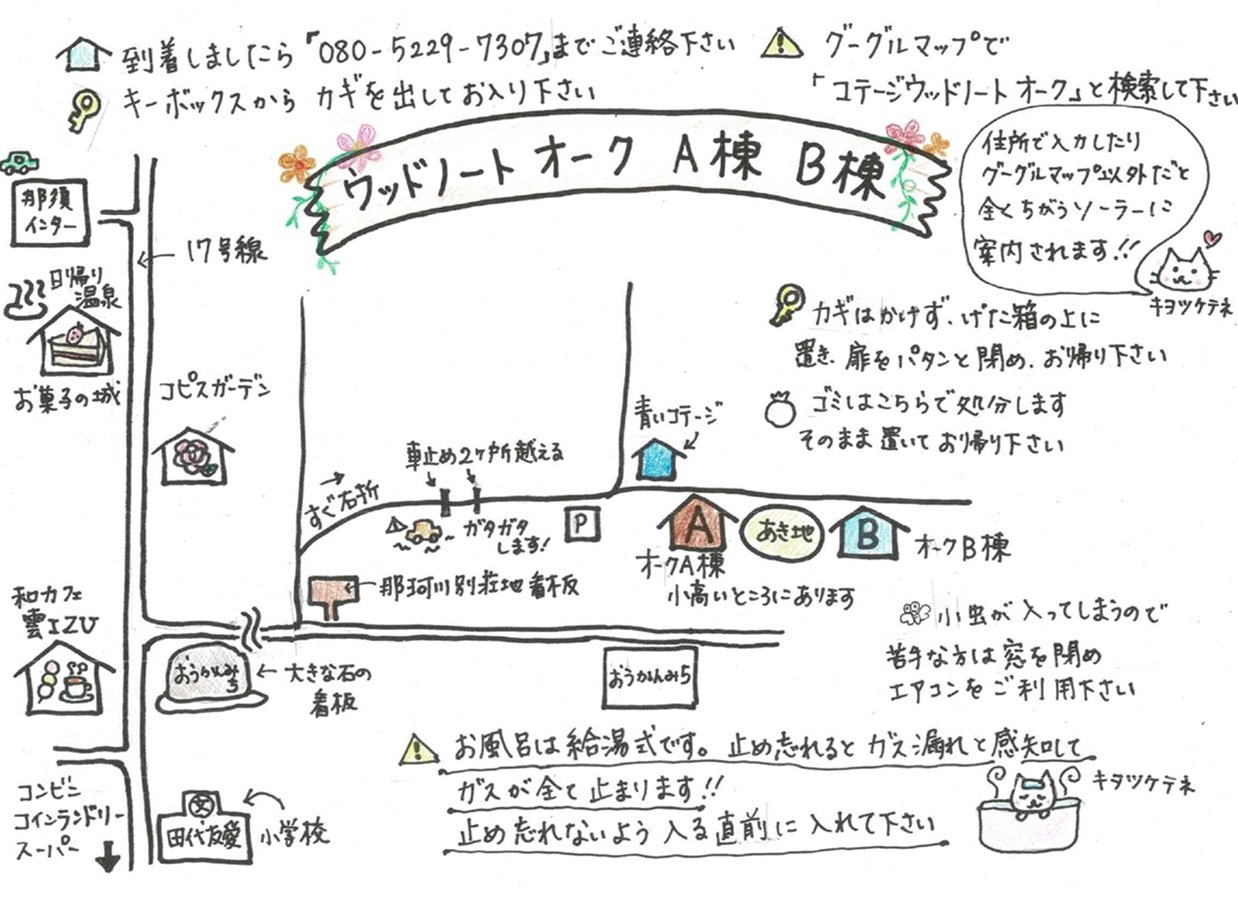 到着しましたら「080-5229-7307」までご連絡下さい
キーボックスから カギを出してお入り下さい
グーグルマップで
「コテージウッドノート オーク」と検索して下さい
ウッドノート オーク A棟 B棟
住所で入力したり
グーグルマップ以外だと
全くちがうソーラーに
案内されます!!
キヲツケテネ
那須
インター
17号線
日帰り
温泉
お菓子の城
コピスガーデン
カギはかけず、げた箱の上に
置き、扉をパタンと閉め、お帰り下さい
ゴミはこちらで処分します
そのまま置いてお帰り下さい
青いコテージ
車止め2ヶ所越える
すぐ右折
ガタガタ
します!
P
A
あき地
B
オークA棟
オークB棟
小高いところにあります
那珂川別荘地看板
和カフェ
雲IZU
おうかんみち
大きな石の
看板
おうかんみち
小虫が入ってしまうので
苦手な方は窓を閉め
エアコンをご利用下さい
お風呂は給湯式です。止め忘れるとガス漏れと感知して
ガスが全て止まります!!
止め忘れないよう入る直前に入れて下さい
キヲツケテネ
コンビニ
コインランドリー
スーパー
文
田代友愛
小学校